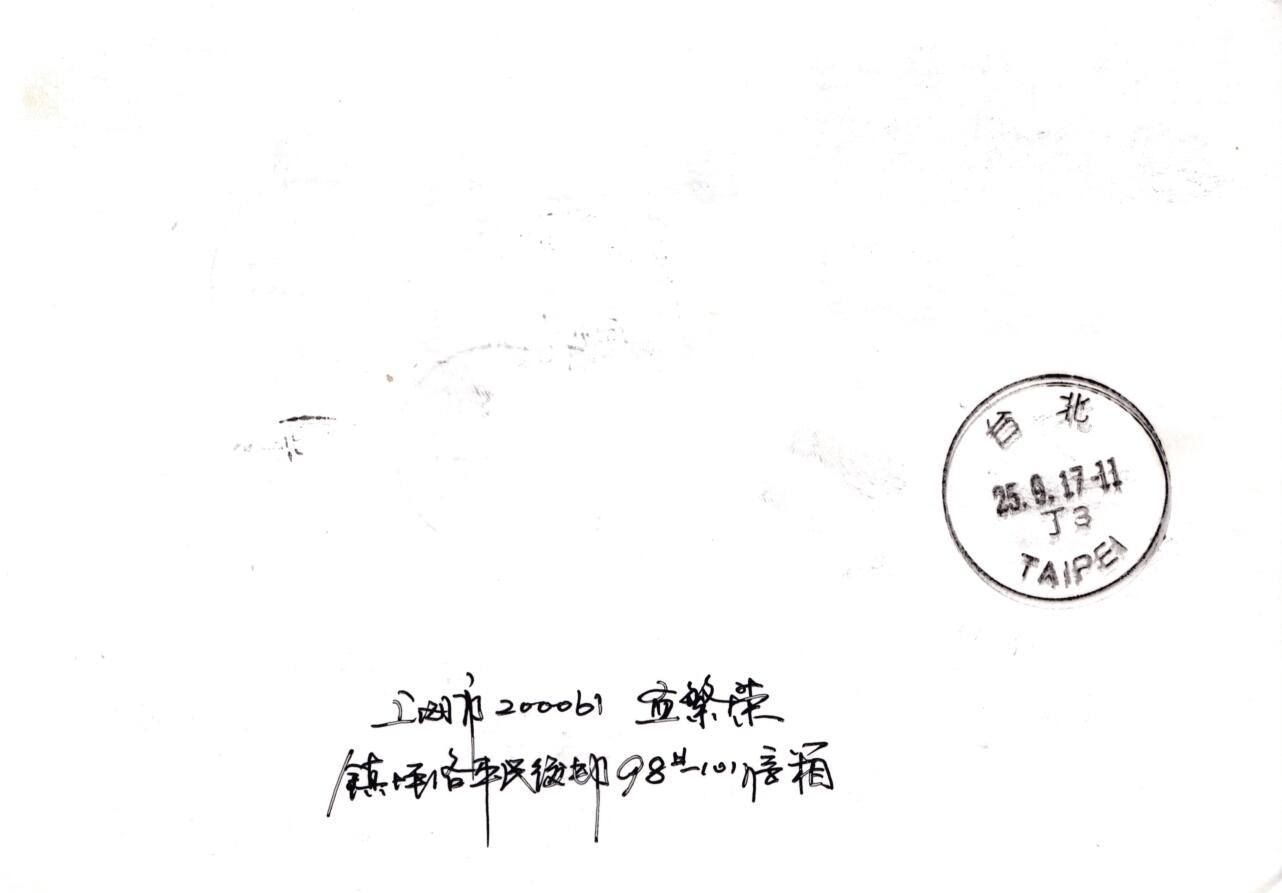 台 北
25.9.17-11
丁3
TAIPEI
上海市 200061 繁荣
鎮坪路平民 98# 101 信箱